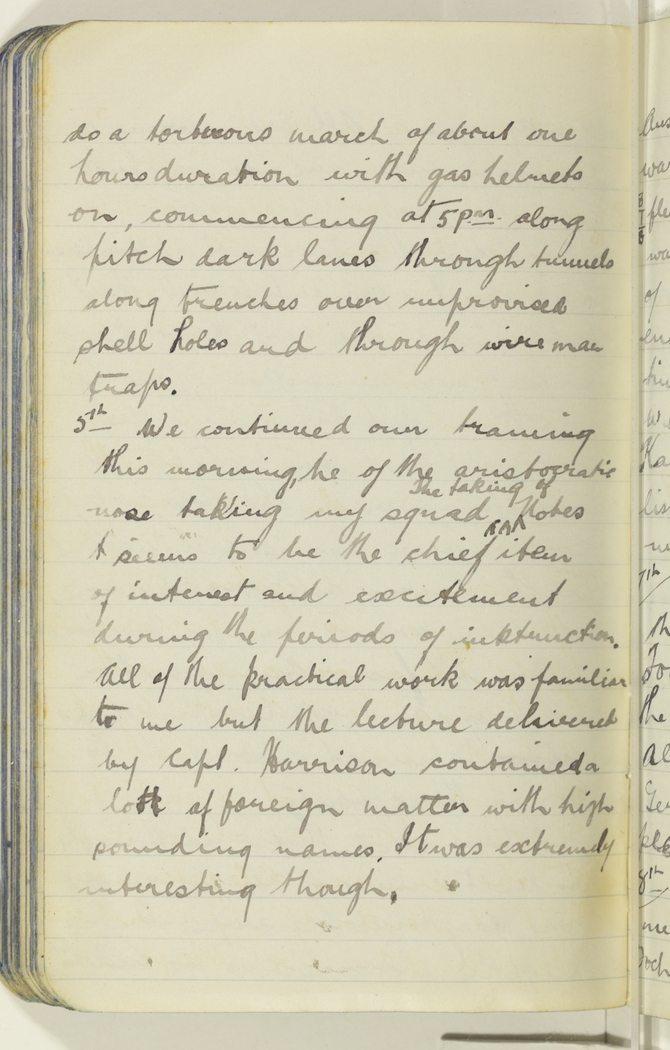 do a tortuous march of about one
hours duration with gas helmets
on, commencing at 5pm. along
pitch dark lanes through tunnels
along trenches over improvised
shell holes and through wire man
traps.
5th We continued our training
this morning, he of the aristocratic
nose taking my squad The taking of Notes
seems to be the chief item
of interest and excitement
during the periods of instruction.
All of the practical work was familiar
to me but the lecture delivered
by Capt. Harrison contained a
lot of foreign matter with high
sounding names. It was extremely
interesting though.